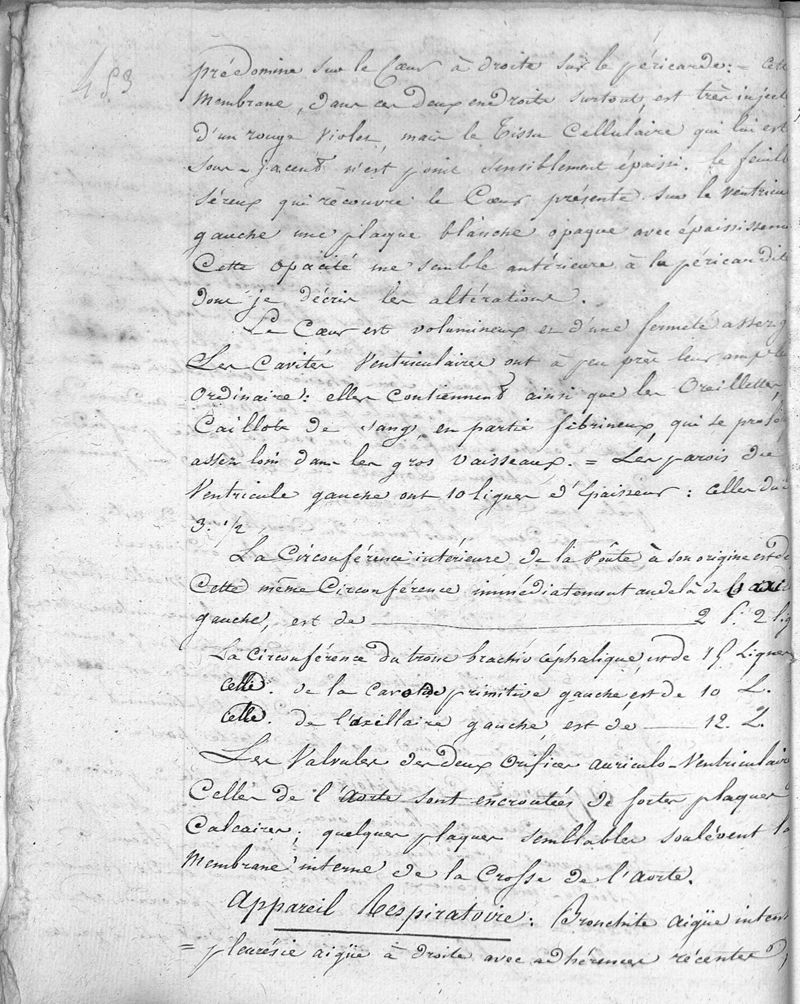 483
prédomine sur le Cœur à droite sur le péricarde: = cett
Membrane, dans ces deux endroits surtout, est très inject
d'un rouge violet, mais le tissu Cellulaire qui lui est
sous-jacent n'est point sensiblement épaissi. le feuill
séreux qui récouvre le Cœur présente sur le ventricu
gauche une plaque blanche opaque avec épaississeme
Cette opacité me semble antérieure à la péricardit
dont je décris les altérations.
Le Cœur est volumineux et d'une fermeté assez g
Les Cavités Ventriculaires ont à peu près leur ampl
Ordinaire: elles contiennent ainsi que les Oreillettes,
Caillots de sang, en partie fibrineux, qui se prolo
assez loin dans les gros vaisseaux. = Les parois du
Ventricule gauche ont 10 lignes d'épaisseur: celles du
3. 1/2
La Circonférence intérieure de l'aorte à son origine est de
Cette même Circonférence immédiatement au delà de
gauche, est de 2 p. 2 lig
La Circonférence du tronc brachio céphalique, est de 15 Lignes
celle. de la Carotide primitive gauche, est de 10 L.
celle. de l'axillaire gauche, est de 12. L.
Les Valvules des deux Orifices auriculo-Ventriculaire
Celles de l'Aorte sont encroutées de fortes plaques
Calcaires; quelques plaques semblables soulèvent la
Membrane interne de la Crosse de l'aorte.
Appareil Respiratoire: Bronchite aigüe intens
= pleurésie aigüe à droite avec adhérences récentes,